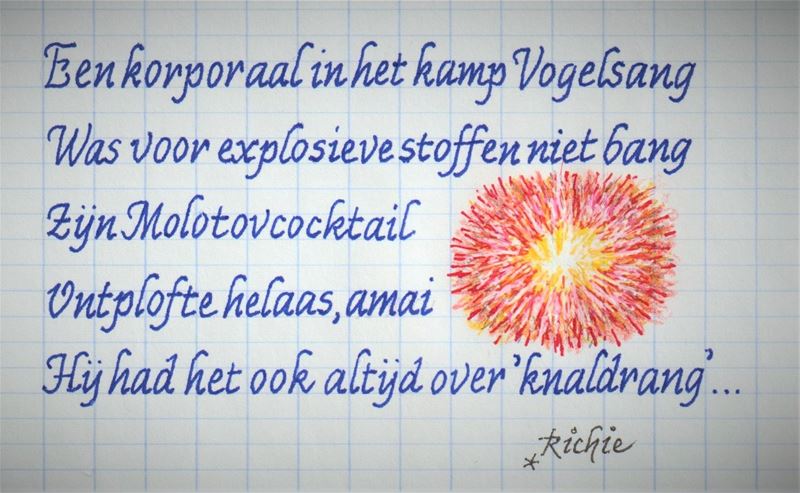 Een korporaal in het kamp Vogelsang
Was voor explosieve stoffen niet bang
Zijn Molotovcocktail
Ontplofte helaas, amai
Hij had het ook altijd over 'knaldrang'...
*Richie